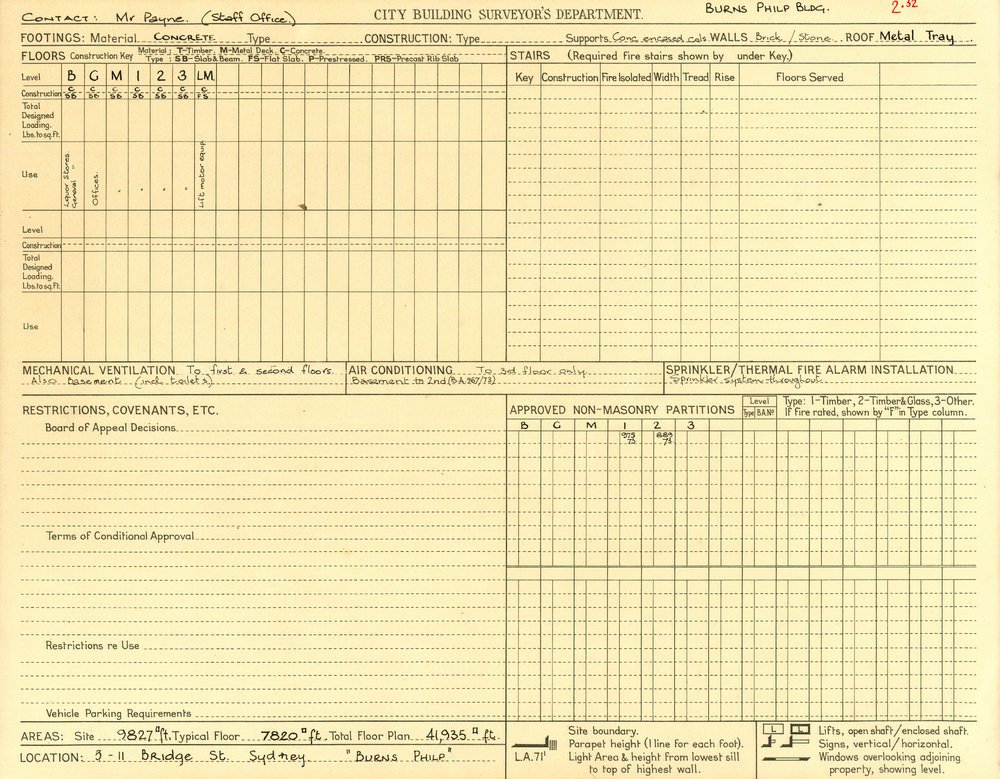 CONTACT: Mr Payne. (Staff Office.)
CITY BUILDING SURVEYOR'S DEPARTMENT.
BURNS PHILP BLDG.
2.32
FOOTINGS: Material CONCRETE Type CONSTRUCTION: Type Supports Conc encased cols WALLS Brick / Stone. ROOF Metal Tray
FLOORS Construction Key Material: T-Timber. M-Metal Deck. C-Concrete.
Type: SB-Slab & Beam. FS-Flat Slab. P-Prestressed. PRS-Precast Rib Slab
Level B G M 1 2 3 LM.
Construction C C C C C C C
SB SB SB SB SB SB FS
Total
Designed
Loading.
Lbs.to sq.ft.
Use
Liquor Stores.
General "
Offices.
" " " "
Lift motor equip.
Level
Construction
Total
Designed
Loading.
Lbs.to sq.ft.
Use
STAIRS (Required Fire stairs shown by under Key.)
Key Construction Fire Isolated Width Tread Rise Floors Served
MECHANICAL VENTILATION To first & second floors.
Also Basement (incl toilets)
AIR CONDITIONING To 3rd floor only.
Basement to 2nd (B.A. 967/73)
SPRINKLER/THERMAL FIRE ALARM INSTALLATION
Sprinkler system throughout.
RESTRICTIONS, COVENANTS, ETC.
Board of Appeal Decisions
Terms of Conditional Approval
Restrictions re Use
Vehicle Parking Requirements
APPROVED NON-MASONRY PARTITIONS
Level
Type B.A.Nº
Type: 1-Timber, 2-Timber & Glass, 3-Other.
If fire rated, shown by "F" in Type column.
B G M 1 2 3
975 889
73 73
AREAS: Site 9827 □ ft. Typical Floor 7820 □ ft. Total Floor Plan 41,935 □ ft.
LOCATION: 5 - 11 Bridge St. Sydney. "BURNS PHILP"
Site boundary.
Parapet height (1 line for each foot).
L.A.71' Light Area & height from lowest sill
to top of highest wall.
L Lifts, open shaft/enclosed shaft.
Signs, vertical/horizontal.
Windows overlooking adjoining
property, showing level.